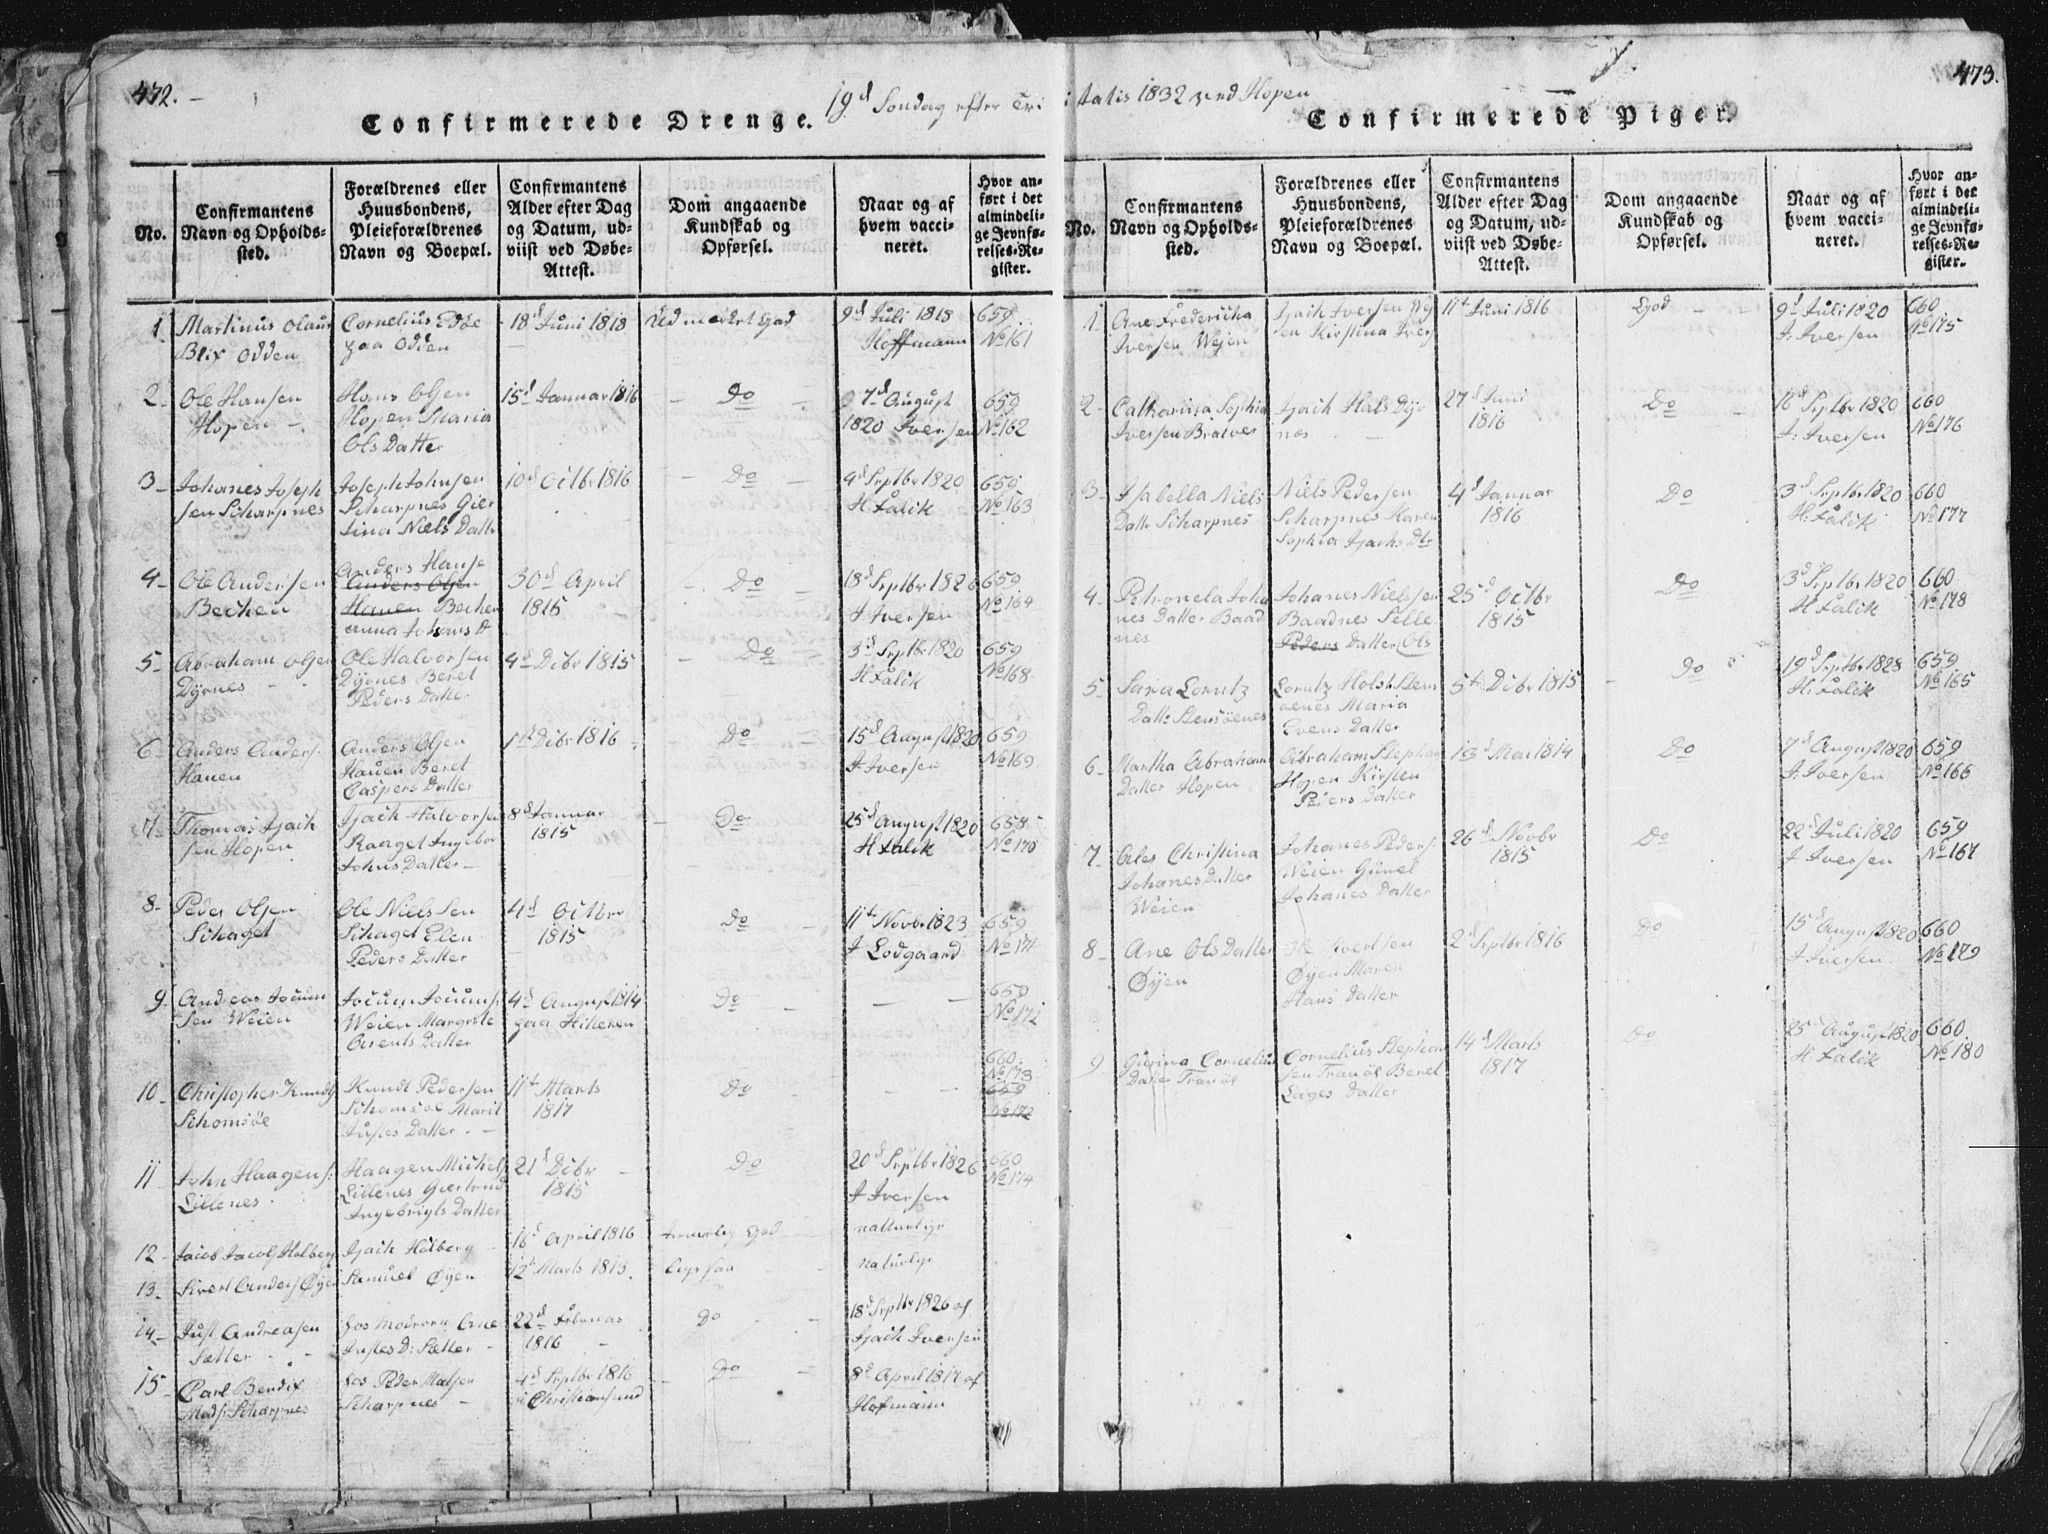 472.
19d Søndag efter Tri
Confirmerede Drenge.
No.
Confirmantens
Navn og Opholds-
sted.
Forældrenes eller
Huusbondens,
Pleieforældrenes
Navn og Boepæl.
Confirmantens
Alder efter Dag
og Datum, ud-
viist ved Døbe-
Attest.
Dom angaaende
Kundskab og
Opførsel.
Naar og af
hvem vacci-
neret.
Hvor an-
ført i det
almindeli-
ge Jevnfø-
relses-Re-
gister.
1 Martinus Olaus
Blix Odden
Cornelius Edøe
paa Odden
18d Juni 1818
Ud mærket God
9d Juli 1818
Hoffmann
659
No 161
2- Ole Hansen
Hopen -
Hans Olsen
Hopen Maria
Ols Datter
15d Januar 1816
Do
7d August
1820 Iversen
659
No 162
3- Johanes Joseph
sen Scharpnes
Joseph Johnsen
Scharpnes Gier
tina Niels Datter
10d Octbr 1816
Do
4d Septbr 1820
H. Falik
659
No 163
4- Ole Andersen
Bechen
Anders Hanse
Anders Olsen
Hauen Bechen
Anna Johans D
30d April
1816
Do
18d Septbr 1826
I Iversen
659
No 164
5- Abraham Olsen
Dyrnes -
Ole Halvorsen
Dyrnes Beret
Peders Datter
4d Decbr 1815
Do
3d Septbr 1820
H Falik
659
No 168
6- Anders Anders:
Hauen
Anders Olsen
Hauen Beret
Caspers Datter
1st Decbr 1816
Do
15d August 1820
I Iversen
659
No 169
7- Thomas Isach
sen Hopen
Isach Halvorsen
Raaget Ingebor
Johns Datter -
8d Januar
1815
Do
25d August 1820
H Falik
658
No 170
8- Peder Olsen
Schaget
Ole Nielsen
Schaget Elen
Peders Datter
4d Octbr
1815
Do
11te Novbr 1823
I Lodgaard
659
No 171
9- Andreas Jocum
sen Weien
Jocum Jocums:
Weien Margrete
Arents Datter
4d August 1814
paa Hitteren
Do
659
No 172
10- Christopher Knuds
Schomsøe
Knudt Pedersen
Schomsøe Marit
Justes Datter - -
11te Marts
1817
Do
660
No 173
659
No 172
11- John Haagens:
Lillenes -
Haagen Michels
Lillenes Giertrud
Ingebrigts Datter
21d Decbr
1815
Do
20d Septbr 1826
I Iversen
660
No 174
12- Jacob Jacobs Holberg
Isach Holberg
16d April 1816
God
natturlige
13- Sivert Anders Øyen
Samuel Øyen
12te Marts 1813.
naturlige
14- Just Andreasen
Sætter - -
hos Ane
Justes D: Sætter -
22d Februar
1816 -
Do
18d Septbr 1826 af
Isach Iversen
15- Carl Bendix
Mads: Scharpnes
hos Peder Matsen
Scharpnes -
4d Septbr 1816
i Christiansund
Do
8d April 1817 af
Hofmann
473.
tatis 1832 ved Hopen
Confirmerede Piger.
No.
Confirmantens
Navn og Opholds-
sted.
Forældrenes eller
Huusbondens,
Pleieforældrenes
Navn og Boepæl.
Confirmantens
Alder efter Dag
og Datum, ud-
viist ved Døbe-
Attest.
Dom angaaende
Kundskab og
Opførsel.
Naar og af
hvem vacci-
neret.
Hvor an-
ført i det
almindeli-
ge Jevnfø-
relses-Re-
gister.
1 Ane Fredericka
Iversen Wejen
Isach Iversen Wej
en Kirstina Ivers
11te Juni 1816
God
9d Juli 1820
I. Iversen
660
No 175
2- Catharina Sophia
Iversen Bratvær
Isach Hals Dyr
nes -
27d Juni
1816
Do
16d Septbr 1820
I. Iversen
660
No 176
3- Isabella Niels
Datter Scharpnes
Niels Pedersen
Scharpnes Karen
Sophia Isachs Dtr
4d Januar
1816
Do
3d Septbr 1820
H. Falik
660
No 177
4- Petronela Joha
nes Datter Baad
nes
Johanes Nielssen
Baadnes Selle
Peders Datter Ols
25d Octbr
1815
Do
3d Septbr 1820
H Falik
660
No 178
5- Sara Lorntz
Datt: Stensøenes
Lorntz Holst Stens
oenes Maria
Evens Datter
5te Decbr 1815
Do
19d Septbr 1828
H. Falik
659
No 165
6- Martha Abraham
Datter Hopen
Abraham Stephan
Hopen Kirsten
Peders Datter
13d Mai 1814
Do
7d August 1820
I. Iversen
659
No 166
7- Ales Christina
Johanes Datter
Weien
Johanes Peders:
Weien Gunel
Johanes Datter
26d Novbr
1815
Do
22d Juli 1820
I Iversen
659
No 167
8- Ane Ols Datter
Øyen
Ole Ivertsen
Øyen Maren
Hans Datter
2d Septbr 1816
Do
15d August 1820
I Iversen
660
No 179
9 Gurina Cornelius
Datter Tranøe
Cornelius Stephan
sen Tranøe Beret
Datter
14d Marts
1817
Do
25d August 1820
H. Falik
660
No 180